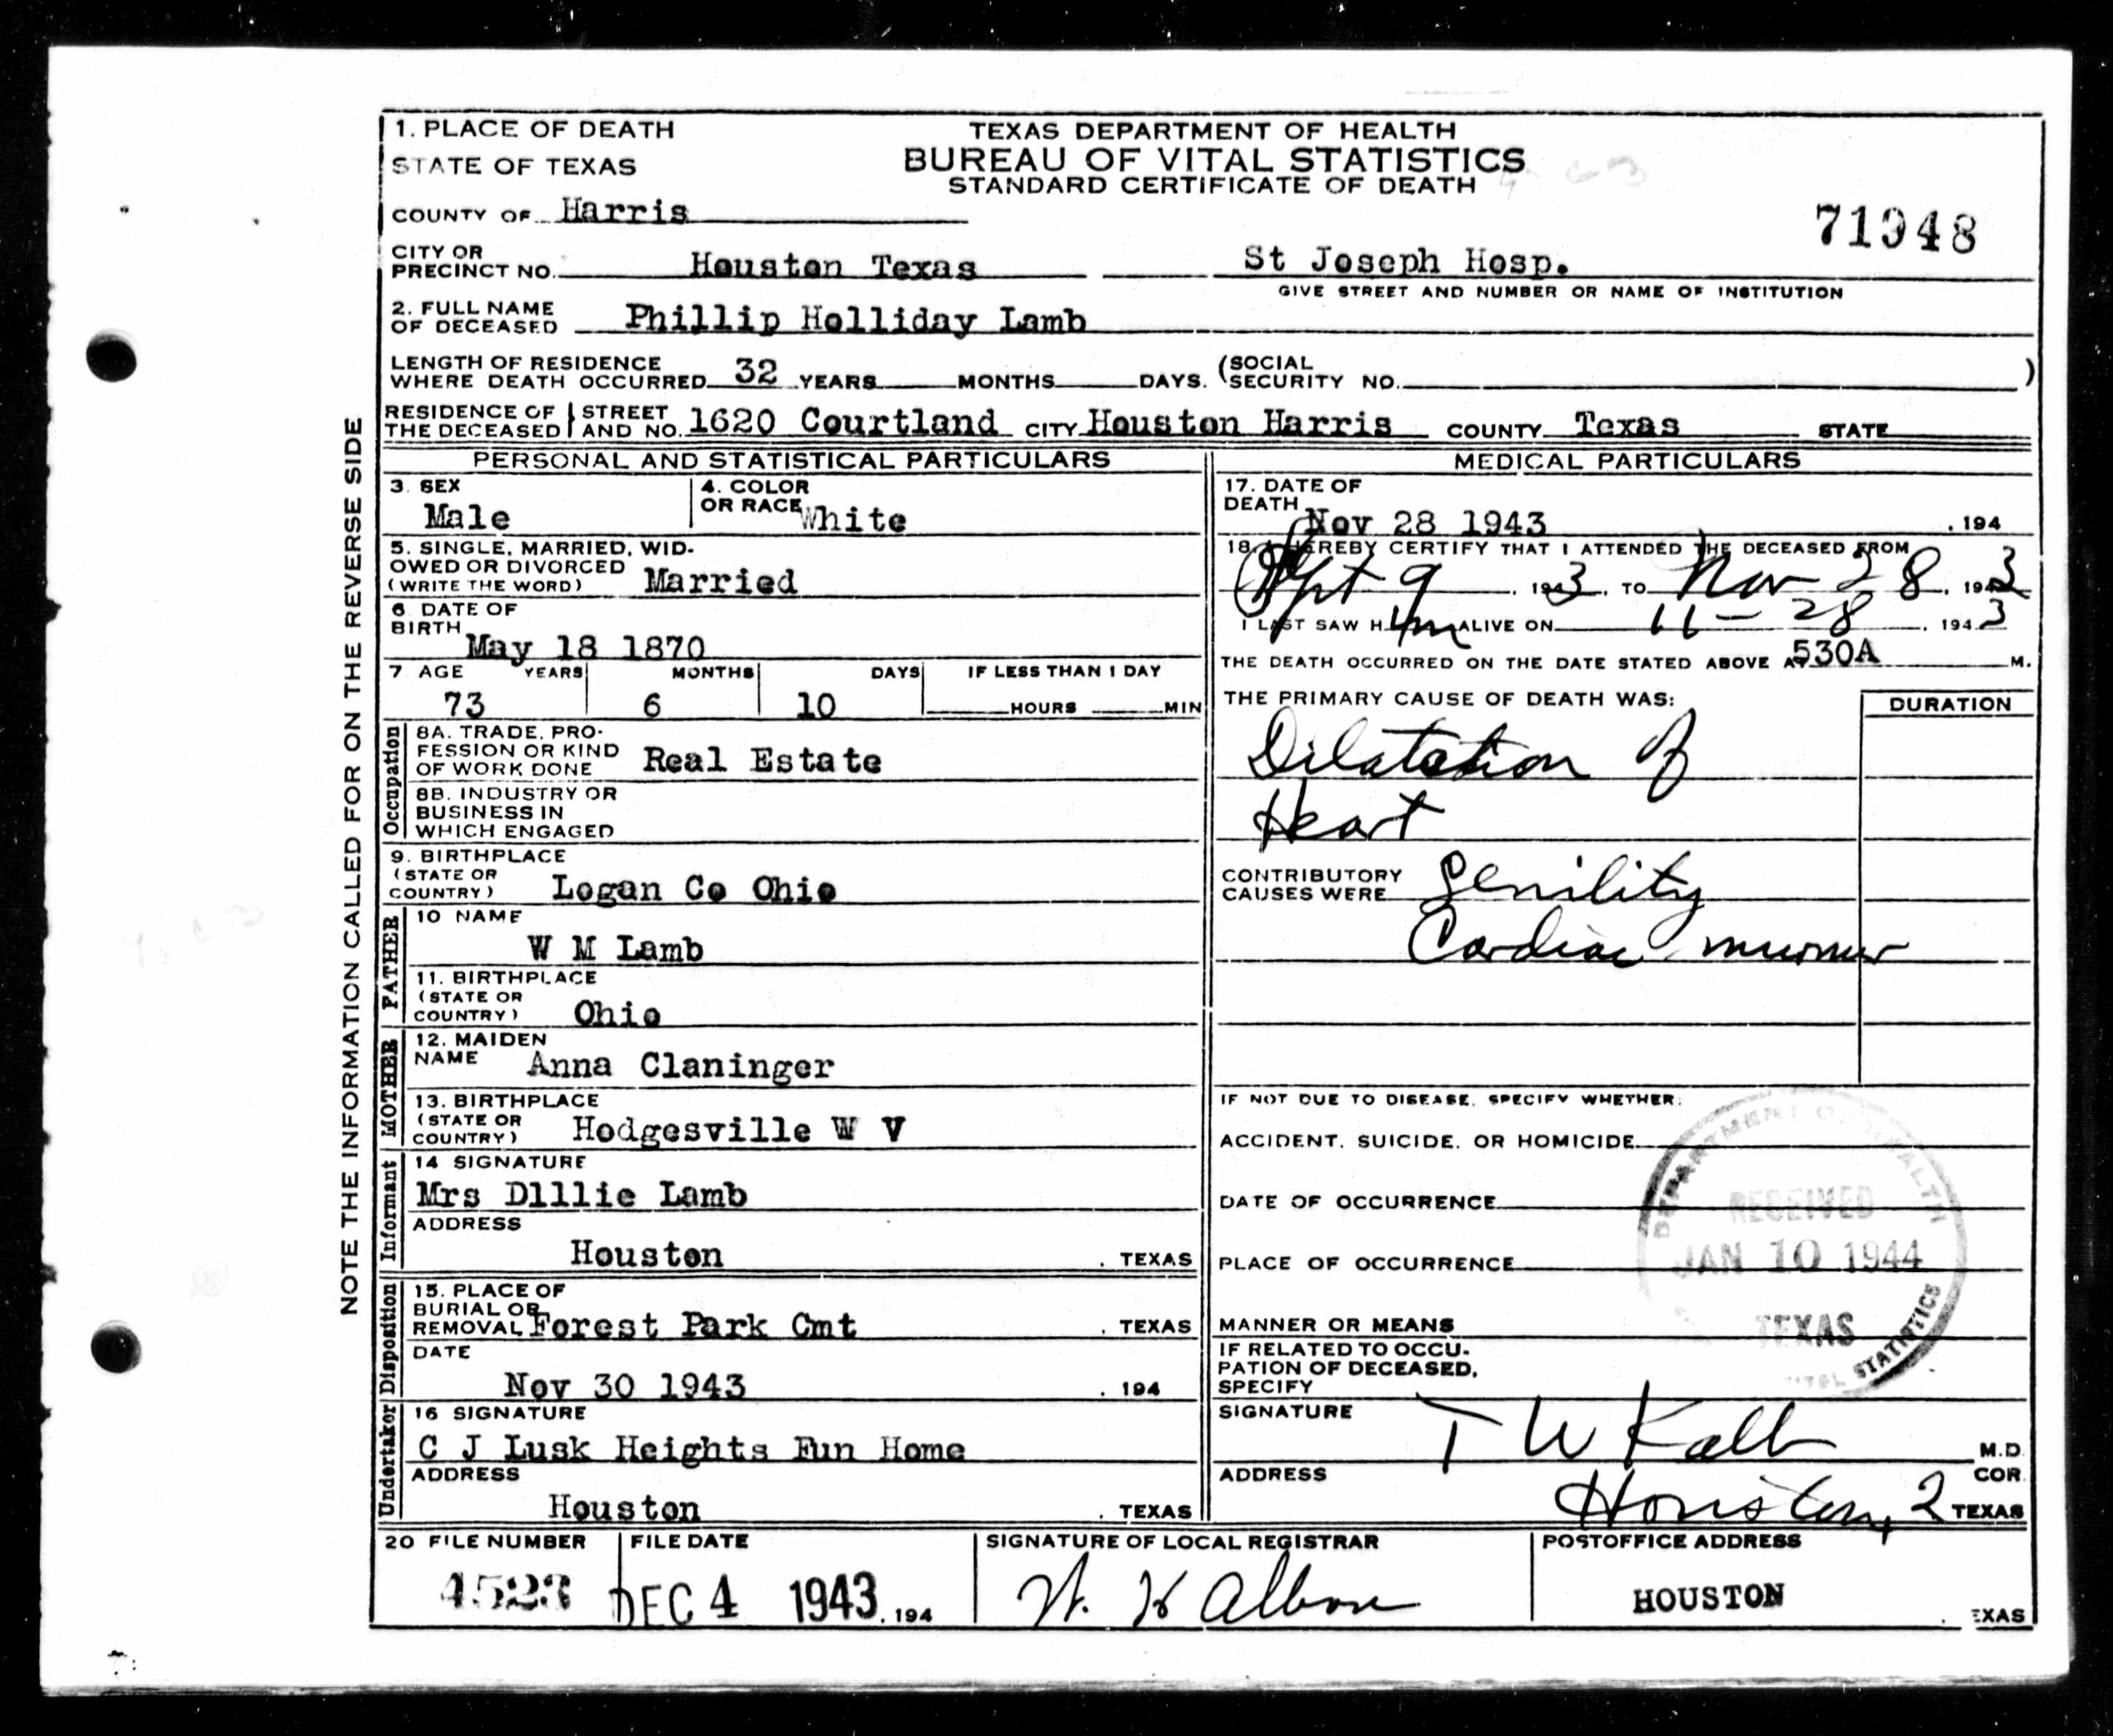 1. PLACE OF DEATH
STATE OF TEXAS
TEXAS DEPARTMENT OF HEALTH
BUREAU OF VITAL STATISTICS
STANDARD CERTIFICATE OF DEATH
COUNTY OF Harris
71948
CITY OR
PRECINCT NO. Houston Texas St Joseph Hosp.
GIVE STREET AND NUMBER OR NAME OF INSTITUTION
2. FULL NAME
OF DECEASED Phillip Holliday Lamb
LENGTH OF RESIDENCE
WHERE DEATH OCCURRED 32 YEARS MONTHS DAYS. (SOCIAL
SECURITY NO. )
RESIDENCE OF THE DECEASED STREET AND NO. 1620 Courtland CITY Houston Harris COUNTY Texas STATE
NOTE THE INFORMATION CALLED FOR ON THE REVERSE SIDE
PERSONAL AND STATISTICAL PARTICULARS
3. SEX
Male
4. COLOR
OR RACE White
5. SINGLE, MARRIED, WID-
OWED OR DIVORCED
(WRITE THE WORD) Married
6 DATE OF
BIRTH May 18 1870
7 AGE YEARS MONTHS DAYS IF LESS THAN 1 DAY
73 6 10 HOURS MIN
Occupation
8A. TRADE, PRO-
FESSION OR KIND
OF WORK DONE Real Estate
8B. INDUSTRY OR
BUSINESS IN
WHICH ENGAGED
9. BIRTHPLACE
(STATE OR
COUNTRY) Logan Co Ohio
FATHER
10 NAME
W M Lamb
11. BIRTHPLACE
(STATE OR
COUNTRY) Ohio
MOTHER
12. MAIDEN
NAME Anna Claninger
13. BIRTHPLACE
(STATE OR
COUNTRY) Hodgesville W V
Informant
14 SIGNATURE
Mrs Dlllie Lamb
ADDRESS
Houston . TEXAS
Disposition
15. PLACE OF
BURIAL OR
REMOVAL Forest Park Cmt . TEXAS
DATE
Nov 30 1943 . 194
Undertaker
16 SIGNATURE
C J Lusk Heights Fun Home
ADDRESS
Houston . TEXAS
MEDICAL PARTICULARS
17. DATE OF
DEATH Nov 28 1943 . 194
18. I HEREBY CERTIFY THAT I ATTENDED THE DECEASED FROM
Sept 9 , 1943, TO Nov 28, 1943
I LAST SAW Him ALIVE ON 11-28, 1943
THE DEATH OCCURRED ON THE DATE STATED ABOVE AT 530A M.
THE PRIMARY CAUSE OF DEATH WAS: DURATION
Dilatation of
Heart
CONTRIBUTORY
CAUSES WERE Senility
Cardiac murmur
IF NOT DUE TO DISEASE, SPECIFY WHETHER:
ACCIDENT, SUICIDE, OR HOMICIDE
DATE OF OCCURRENCE
PLACE OF OCCURRENCE
MANNER OR MEANS
IF RELATED TO OCCU-
PATION OF DECEASED,
SPECIFY
DEPARTMENT OF HEALTH
RECEIVED
JAN 10 1944
TEXAS
STATISTICS
SIGNATURE T W Kalb M.D.
ADDRESS COR.
Houston, 2 TEXAS
20 FILE NUMBER
4523
FILE DATE
DEC 4 1943 . 194
SIGNATURE OF LOCAL REGISTRAR
POSTOFFICE ADDRESS
HOUSTON
EXAS